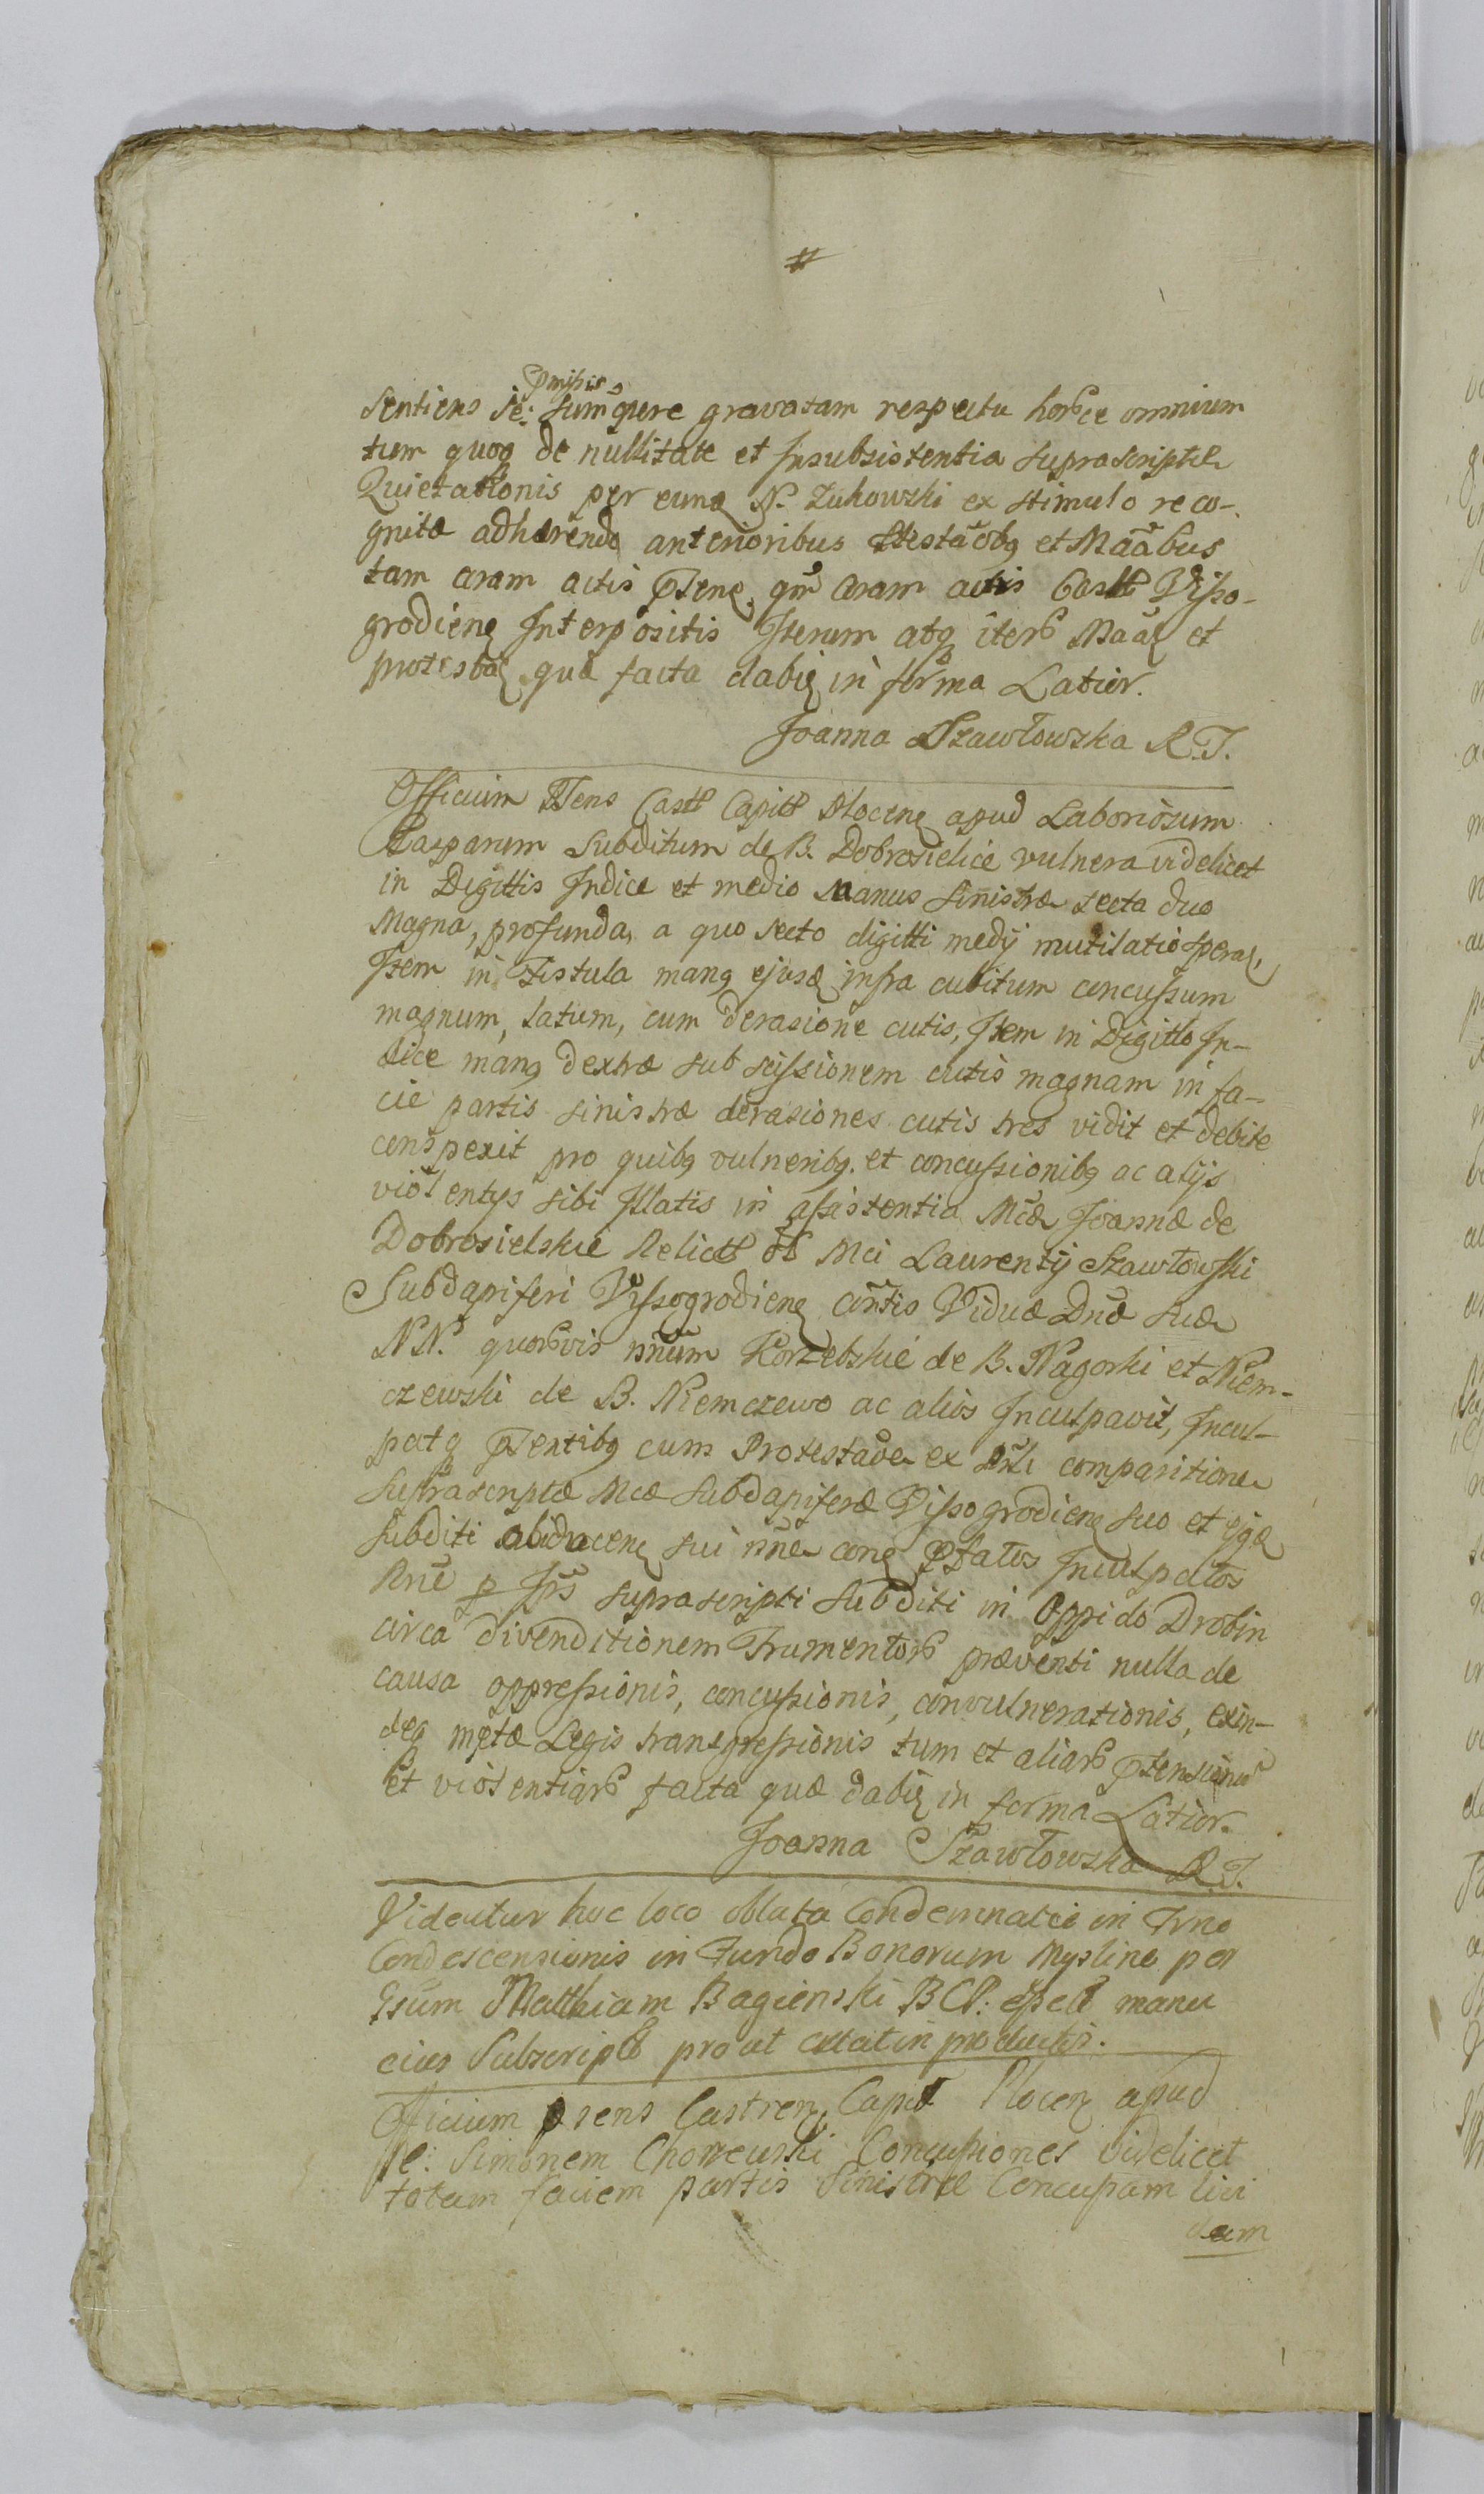 #
præmissis
sentiens se: summopere gravatam respectu horce omnium
tum quoq de nullitate et Insubsistentia suprascriptæ
Quietationis per eunq N. Zukowski ex stimulo reco-
gnitæ adhærendo anterioribus Ptestaobq et Maabus
tam coram actis Ptenq qm coram actis Castr Visso-
grodienq Interpositis Iterum atq itero Maaq et
protestaq quæ facta dabiq in forma Latior.
Joanna Szawłowska R. T.
Officium Ptens Castr Capitt Plocenq apud Laboriosum
Casparum subditum de B. Dobrosielice vulnera videlicet
in Digittis Indice et medio Manus sinistræ secta duo
Magna, profunda, a quo secto digitti medij mutilatio speraq,
Item in Fistula manq ejusq infra cubitum concussum
magnum, latum, cum derasione cutis, Item in Digitto In-
dice manq dextræ sub scissionem cutis magnam in fa-
cie partis sinistræ derasiones cutis tres vidit et debite
conspexit pro quibq vulneribq et concussionibq ac alijs
violentys sibi Illatis in assistentia Mcæ Joannæ de
Dobrosielskie Relictæ ol Mci Laurentij Szawłowski
Subdapiferi Vissogrodienq cntis Viduæ Dnæ suæ
N N. quorvis nnum Korzebskie de B. Nagorki et Niem-
czewski de B. Niemczewo ac alios Inculpavit, Incul-
patq Ptentibq cum Protestaoe ex psnli comparitione
suprascriptæ Mcæ Subdapiferæ Vissogrodienq suo et ejqq
subditi obedacenq sui nne conq Pfatos Inculpatos
Rne p Ips suprascripti subditi in Oppido Drobin
circa divenditionem Frumentor præventi nulla de
causa oppressionis, concussionis, convulnerationis, exin-
deq metæ Legis transgressionis tum et aliar Ptensionu
et violentiar facta quæ dabiq in forma Latior.
Joanna Szawłowska R T.
Videatur hoc loco oblata Condemnatio in Trno
Condescensionis in Fundo Bonorum Myslino per
Gsum Matthiam Bagienski BCP: expedt manu
eius Subscript prout extat in productis.
Officium psens Castrenq Capit Plocenq apud
Ne: Simonem Chorzewski Concussiones videlicet
totam faciem partis Sinistræ Concussam livi
dam